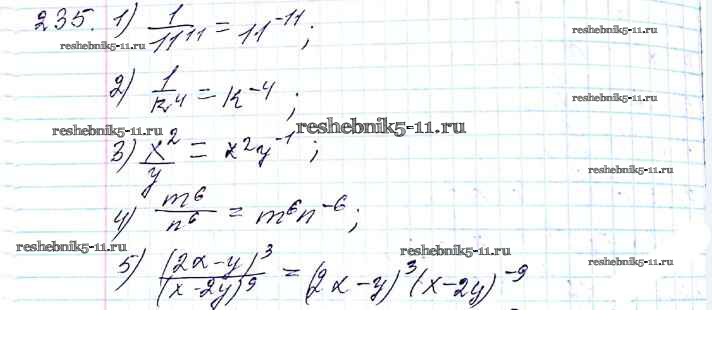 235. 1) 1/11^11 = 11^-11;
reshebnik5-11.ru reshebnik5-11.ru
2) 1/k^4 = k^-4;
reshebnik5-11.ru
reshebnik5-11.ru reshebnik5-11.ru
3) x^2/y = x^2y^-1;
reshebnik5-11.ru
4) m^6/n^6 = m^6n^-6;
reshebnik5-11.ru reshebnik5-11.ru
reshebnik5-11.ru
5) (2x-y)^3/(x-2y)^9 = (2x-y)^3(x-2y)^-9